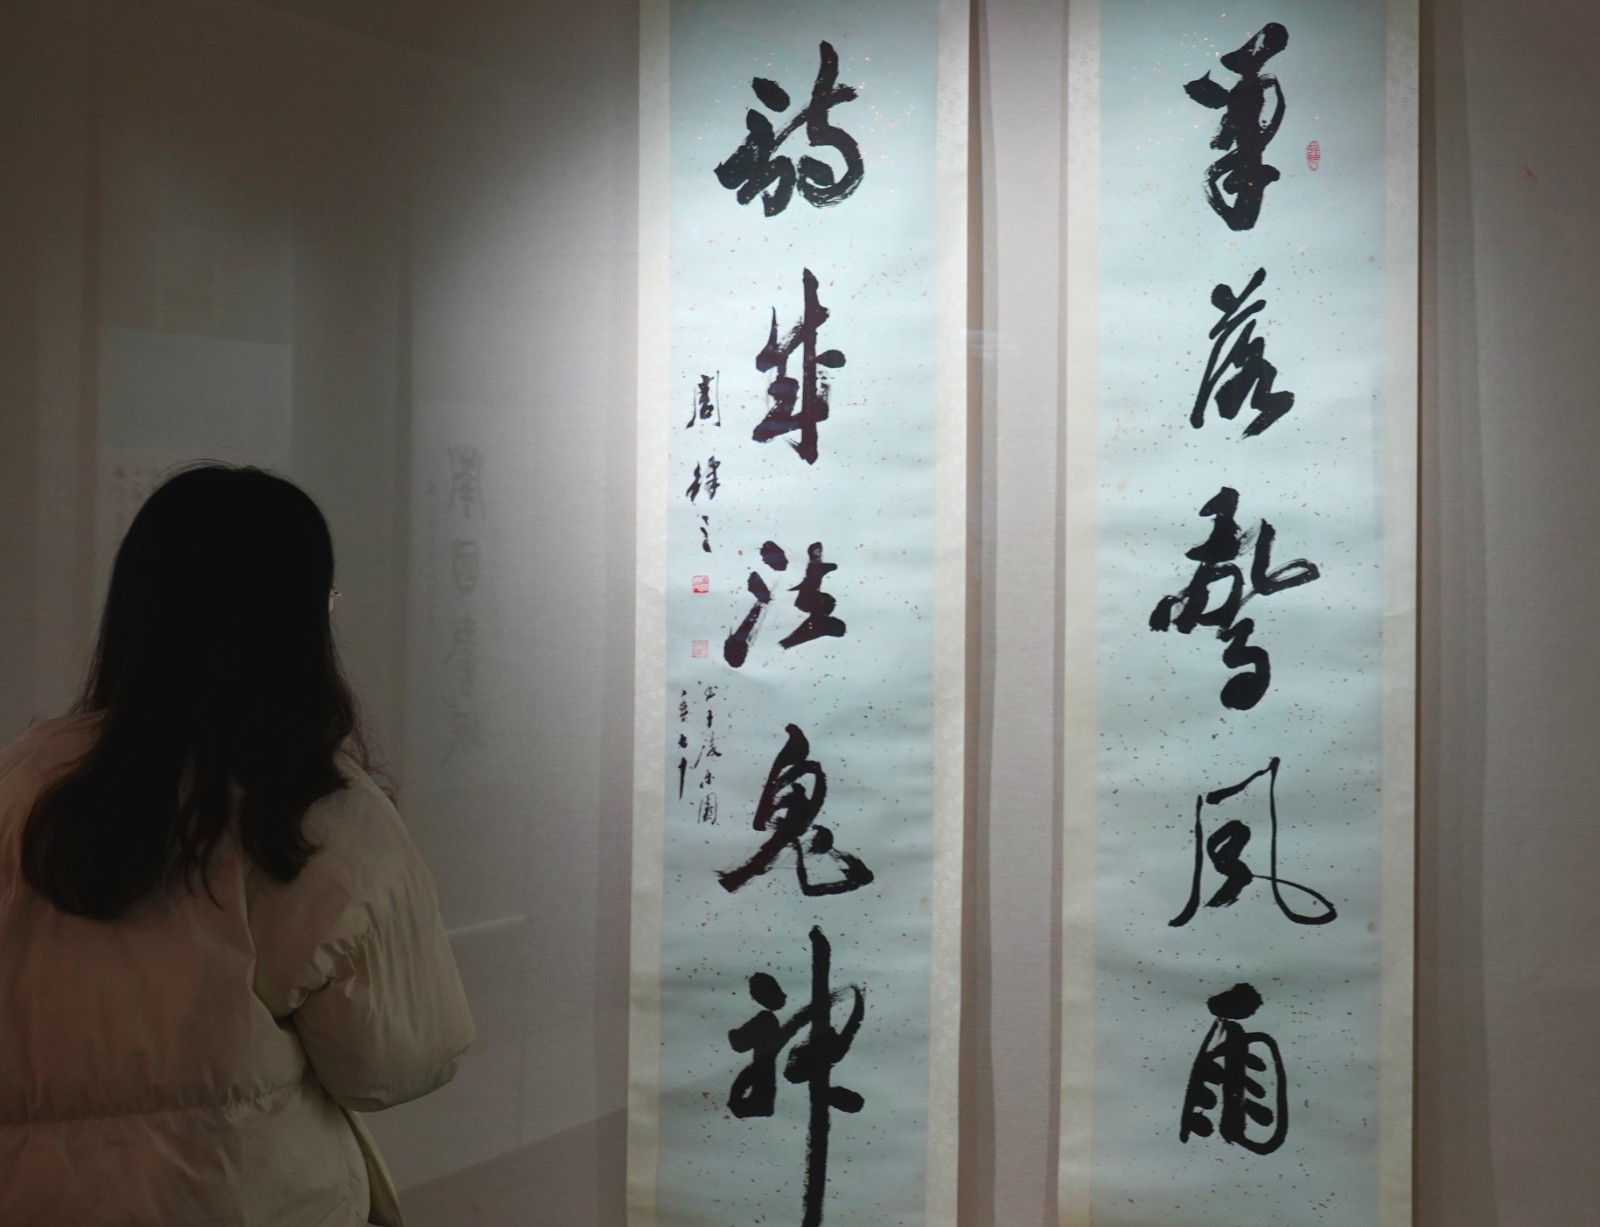 筆落驚風雨
詩成泣鬼神
周律之